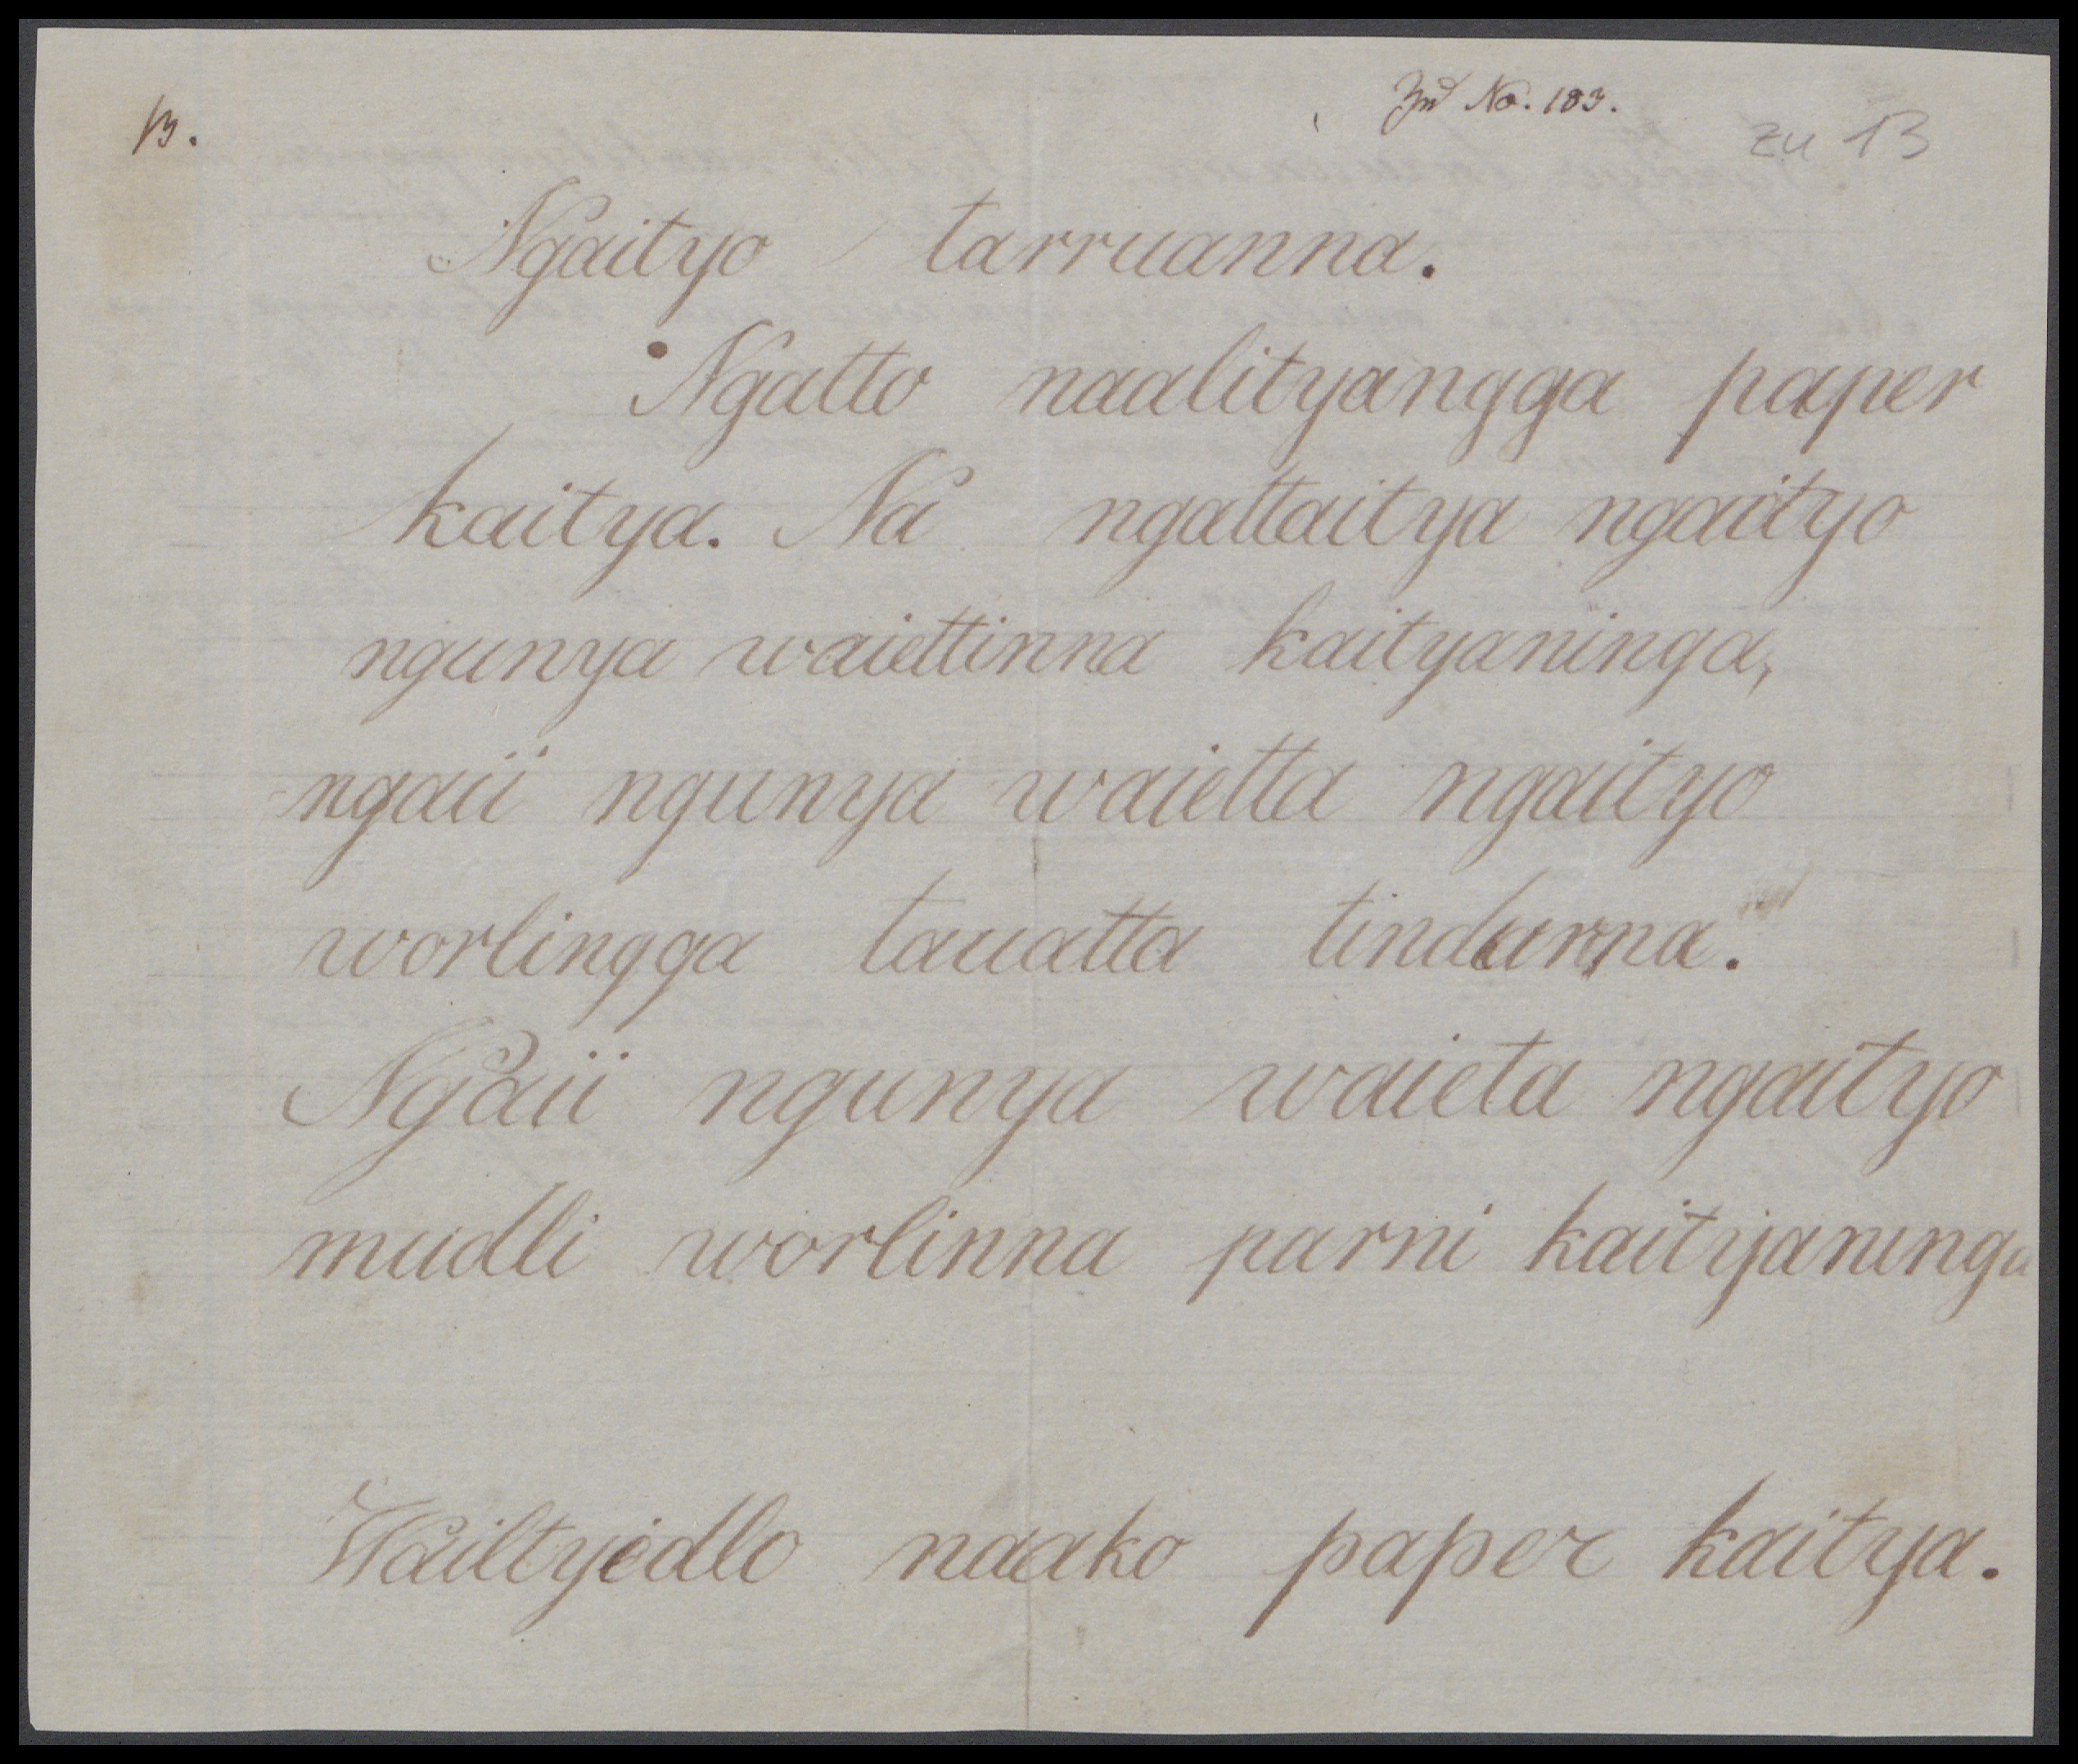 13.
Zu No. 183.
zu 13
Ngaityo tarruanna.
Ngatto naalityangga paper
kaitya. Na ngattaitya ngaityo
ngunya waiettinna kaityaninga,
ngaii ngunya waietta ngaityo
worlingga tauatta tindurna.
Ngaii ngunya waieta ngaityo
mudli worlinna parni kaityaninga
Wailtyidlo naako paper kaitya.